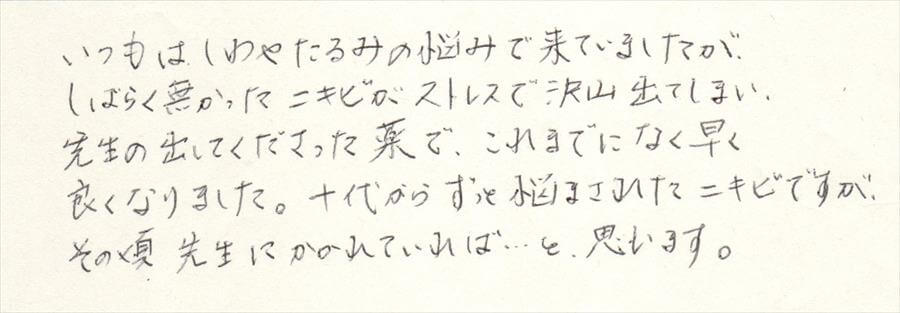 いつもは、しわやたるみの悩みで来ていましたが、
しばらく無かったニキビがストレスで沢山出てしまい、
先生の出してくださった薬で、これまでになく早く
良くなりました。十代からずっと悩まされたニキビですが、
その頃先生にかかれていれば…と、思います。